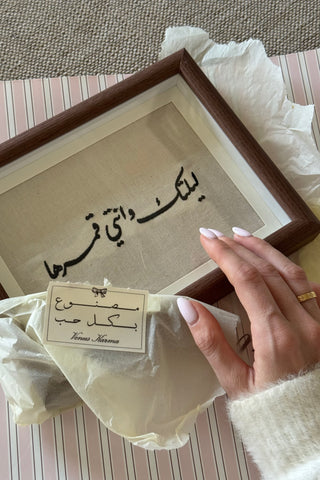 ليلتك وانتي قمرها
مصنوع
بكل حب
Venus Karma